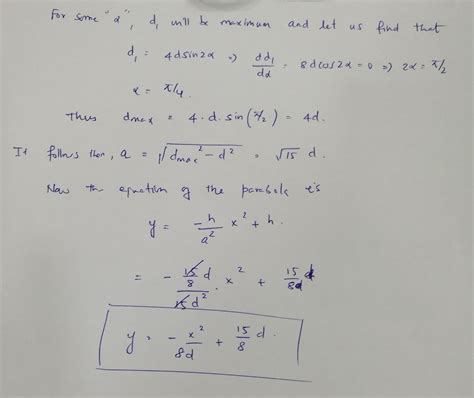 For some "α", d₁ will be maximum and let us find that
d₁ = 4dsin2α ⇒ dd₁/dα = 8dcos2α = 0 ⇒ 2α = π/2
α = π/4.
Thus dmax = 4·d·sin(π/2) = 4d.
It follows then, a = √(dmax² - d²) = √15 d.
Now the equation of the parabola is
y = -h/a² x² + h.
= - (15/8 d)/(15d²) · x² + 15/8 d
y = - x²/8d + 15/8 d.